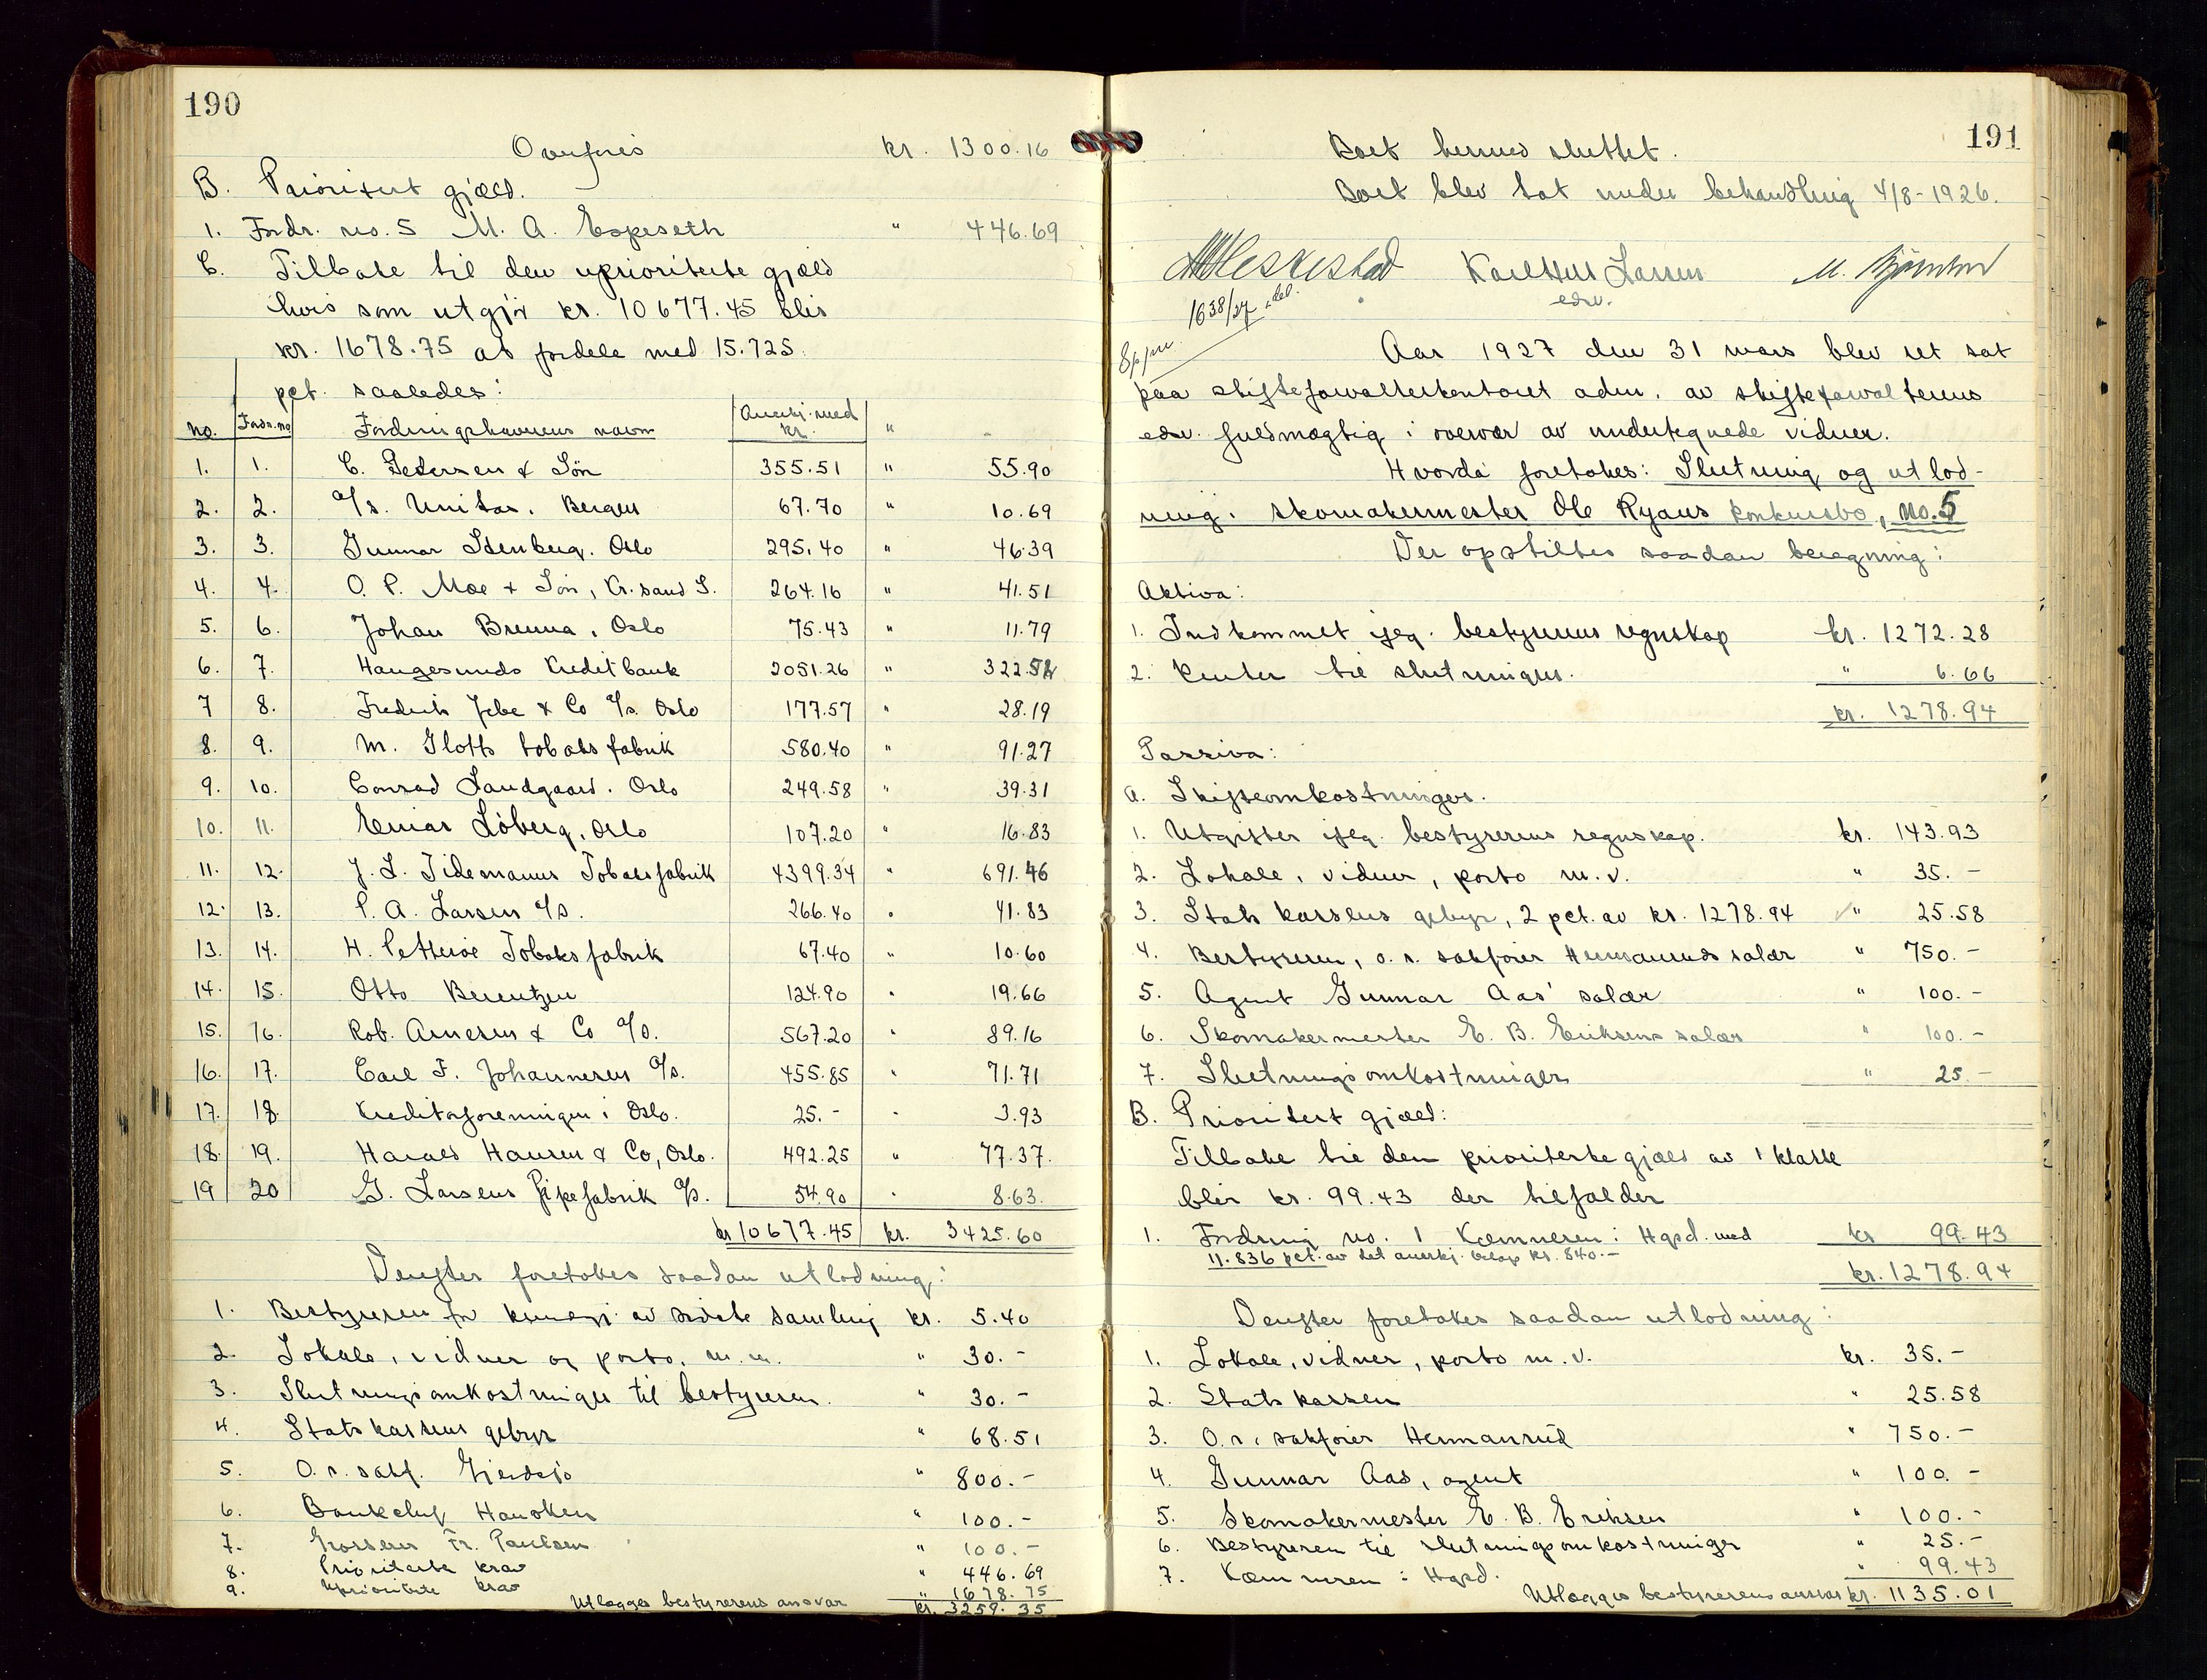 190
Overføres kr. 1300.16
B. Prioritert gjæld.
1. Fordr. no. 5 M. A. Espeseth " 446.69
C. Tilbake til den uprioriterte gjæld
hvis som utgjør kr. 10677.45 blir
kr. 1678.75 at fordele med 15.725
pct. saaledes:
No. Fordr. no Fordringshaverens navn Anerkj. med kr. "
1. 1. C. Pedersen & Søn 355.51 " 55.90
2. 2. A/s. Unitas. Bergen 67.70 " 10.69
3. 3. Gunnar Stenberg. Oslo 295.40 " 46.39
4. 4. O. P. Moe & Søn, Kr.sand S. 264.16 " 41.51
5. 6. Johan Brenna, Oslo 75.43 " 11.79
6. 7. Haugesunds Kreditbank 2051.26 " 322.52
7 8. Fredrik Jebe & Co A/s. Oslo 177.57 " 28.19
8. 9. M. Glotts tobaksfabrik 580.40 " 91.27
9. 10. Conrad Landgaard. Oslo 249.58 " 39.31
10. 11. Einar Löberg, Oslo 107.20 " 16.83
11. 12. J. L. Tidemanns Tobaksfabrik 4399.34 " 691.46
12. 13. P. A. Larsen A/s. 266.40 " 41.83
13. 14. H. Petterøe Tobaksfabrik 67.40 " 10.60
14. 15. Otto Berentzen 124.90 " 19.66
15. 16. Rob. Arnesen & Co A/s. 567.20 " 89.16
16. 17. Carl F. Johannesen A/s. 455.85 " 71.71
17. 18. Kreditorforeningen i Oslo. 25.- " 3.93
18. 19. Harald Hansen & Co, Oslo. 492.25 " 77.37.
19 20 G. Larsens Pipefabrik A/s. 54.90 " 8.63.
kr 10677.45 kr. 3425.60
Derefter foretokes saadan utlodning:
1. Bestyreren for kunngj. av sidste samling kr. 5.40
2. Lokale, vidner og porto. m. m. " 30.-
3. Slutningsomkostninger til bestyreren. " 30.-
4. Statskassens gebyr " 68.51
5. O.r.sakf. Gjerdsjø " 800.-
6. Bankchef Hauken " 100.-
7. Grosserer Fr. Paulsen " 100.-
8. Prioriterte krav " 446.69
9. Uprioriterte krav " 1678.75
Utlægges bestyrerens ansvar kr. 3259.35
191
Boet hermed sluttet.
Boet blev tat under behandling 4/8-1926.
Karl Hus Larsen
edsv.
1638/27. del.
Aar 1927 den 31 mars blev ret sat
paa skifteforvalterkontoret adm. av skifteforvalterens
edsv. fuldmægtig i overvær av undertegnede vidner.
Hvorda foretokes: Slutning og utlod-
ning i skomakermester Ole Ryans konkursbo, No. 5
Der opstilles saadan beregning:
Aktiva:
1. Indkommet ifølg. bestyrerens regnskap kr. 1272.28
2. Renter til slutningen. " 6.66
kr. 1278.94
Passiva:
A. Skifteomkostninger.
1. Utgifter iflg. bestyrerens regnskap. kr. 143.93
2. Lokale, vidner, porto m.v. " 35.-
3. Statskassens gebyr, 2 pct. av kr. 1278.94 " 25.58
4. Bestyreren, o.r. sakfører Hermanruds salær " 750.-
5. Agent Gunnar Aas' salær " 100.-
6. Skomakermester E. B. Eriksens salær " 100.-
7. Slutningsomkostninger " 25.-
B. Prioritert gjæld:
Tilbake til den prioriterte gjæld av 1 klasse
blir kr. 99.43 der tilfalder
1. Fordring no. 1 Kæmneren i Hgsd. med kr 99.43
11.836 pct. av det anerkj. beløp kr. 840.-
kr. 1278.94
Derefter foretokes saadan utlodning:
1. Lokale, vidner, porto m.v. kr. 35.-
2. Statskassen " 25.58
3. O.r. sakfører Hermanrud " 750.-
4. Gunnar Aas, agent " 100.-
5. Skomakermester E. B. Eriksen " 100.-
6. Bestyreren til slutningsomkostninger " 25.-
7. Kæmneren i Hgsd. " 99.43
Utlægges bestyrerens ansvar kr. 1135.01